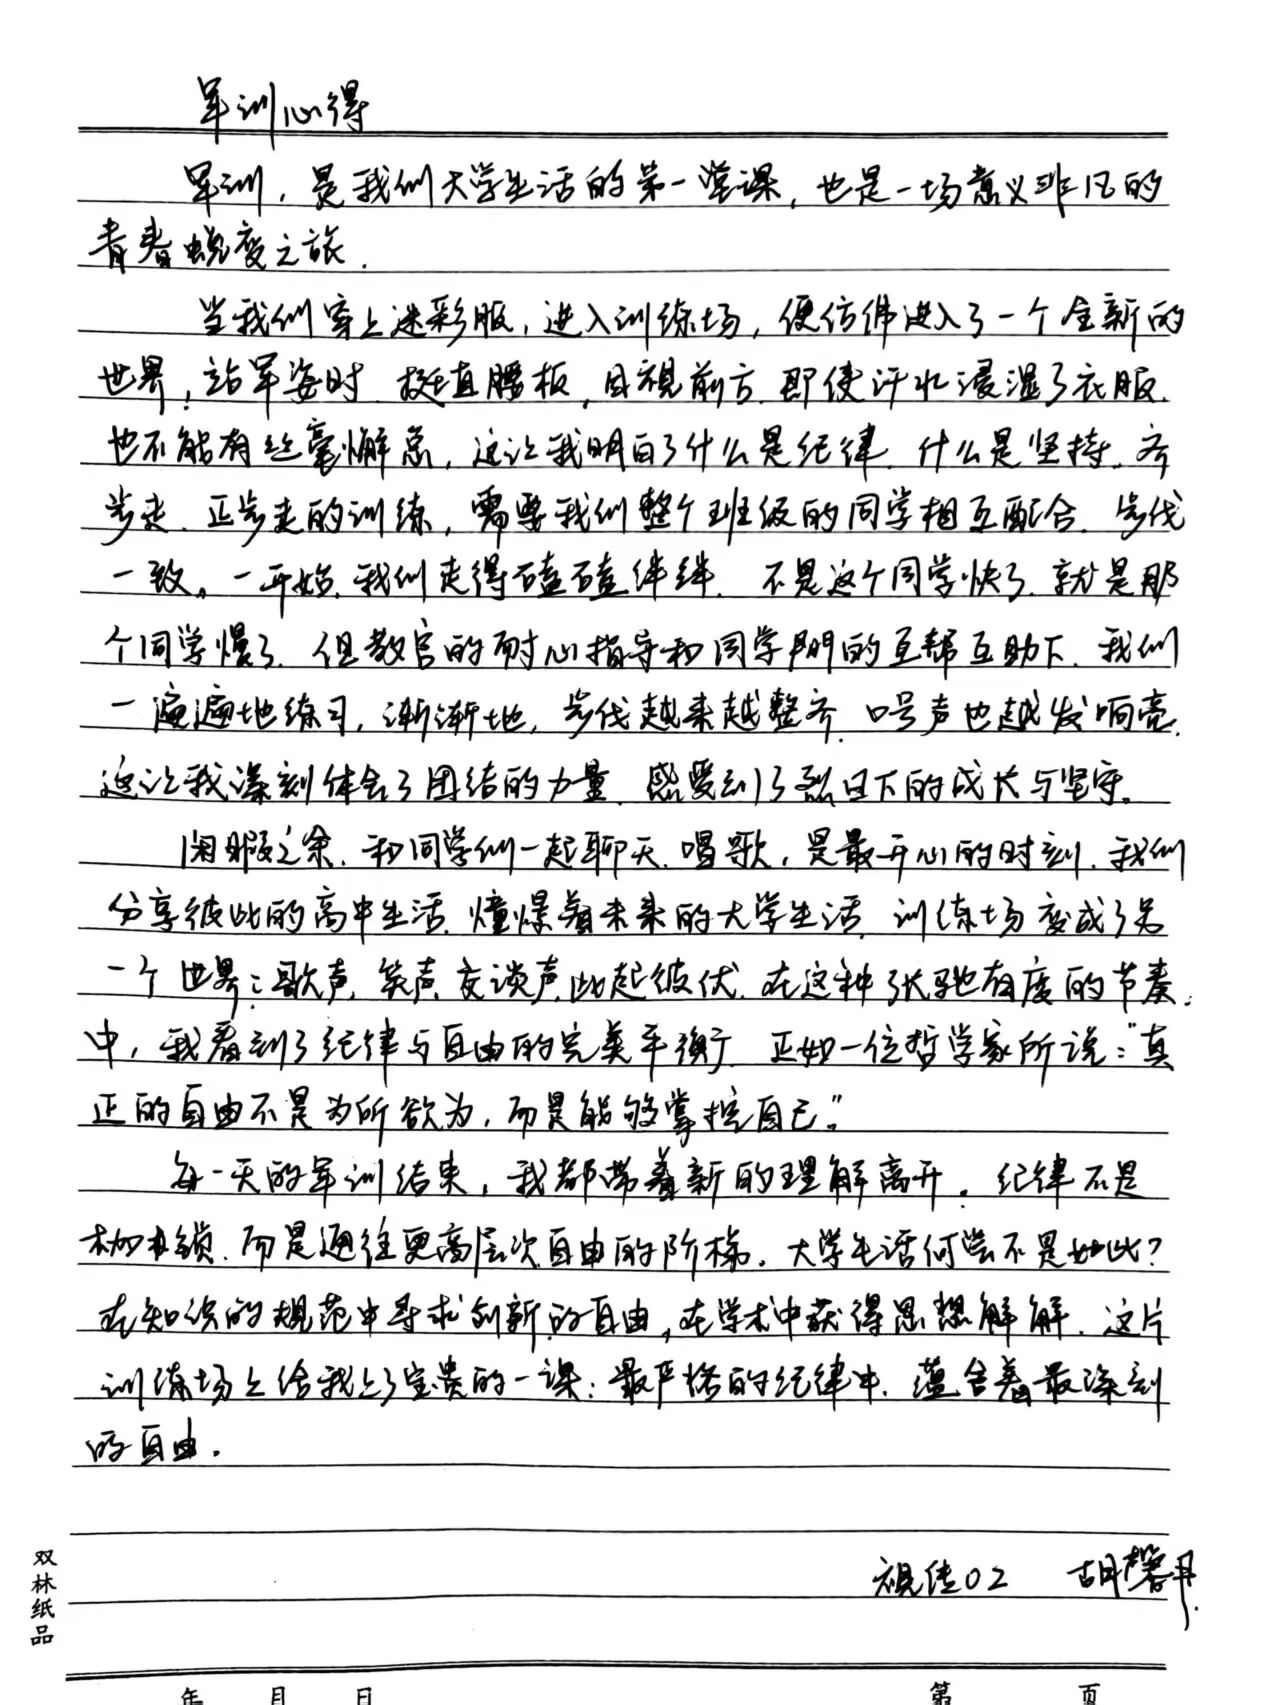 军训心得
军训，是我们大学生活的第一堂课，也是一场意义非凡的
青春蜕变之旅.
当我们穿上迷彩服，进入训练场，便仿佛进入了一个全新的
世界，站军姿时.挺直腰板，目视前方.即使汗水浸湿了衣服.
也不能有丝毫懈怠，这让我明白了什么是纪律.什么是坚持。齐
步走.正步走的训练，需要我们整个班级的同学相互配合.步伐
一致。一开始.我们走得磕磕绊绊.不是这个同学快了.就是那
个同学慢了.但教官的耐心指导和同学們的互帮互助下.我们
一遍遍地练习，渐渐地，步伐越来越整齐.口号声也越发响亮.
这让我深刻体会了团结的力量.感受到了烈日下的成长与坚守。
闲暇之余.和同学们一起聊天.唱歌，是最开心的时刻.我们
分享彼此的高中生活.憧憬着未来的大学生活.训练场变成了另
一个世界：歌声.笑声.交谈声.此起彼伏.在这种张弛有度的节奏.
中，我看到了纪律与自由的完美平衡.正如一位哲学家所说："真
正的自由不是为所欲为，而是能够掌控自己。"
每一天的军训结束，我都带着新的理解离开。纪律不是
枷锁.而是通往更高层次自由的阶梯。大学生活何尝不是如此？
在知识的规范中寻求创新的自由，在学术中获得思想解解.这片
训练场上给我上了宝贵的一课：最严格的纪律中.蕴含着最深刻
的自由.
视传02 胡馨月.
双林纸品
年 月 日 第 页